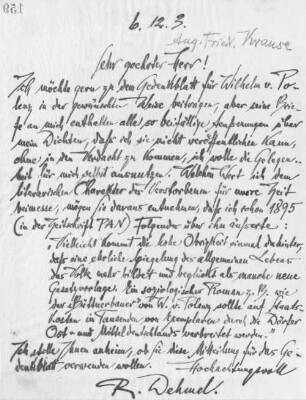 159
6.12.3.
Aug. Fried. Krause
Sehr geehrter Herr!
Ich möchte gern zu dem Gedenkblatt für Wilhelm v. Po-
lenz in der gewünschten Weise beitragen, aber seine Brie-
fe an mich enthalten alle so beifällige Äusserungen über
mein Dichten, dass ich sie nicht veröffentlichen kann,
ohne in den Verdacht zu kommen, ich wolle die Gelegen-
heit für mich selbst ausnutzen. Welchen Wert ich dem
litterarischen Charakter des Verstorbenen für unsre Zeit
beimesse, mögen sie daraus entnehmen, dass ich schon 1895
(in der Zeitschrift PAN) Folgendes über ihn äusserte:
„Vielleicht kommt die hohe Obrigkeit einmal dahinter,
dass eine ehrliche Spiegelung des allgemeinen Lebens
das Volk mehr bildet und beglückt als manche neue
Gesetzvorlage. Ein soziologischer Roman z. B. wie
der Büttnerbauer von W. v. Polenz sollte auf Staats-
kosten in Tausenden von Exemplaren durch die Dörfer
Ost- und Mitteldeutschlands verbreitet werden."
Ich stelle Ihnen anheim, ob Sie diese Mitteilung für das Ge-
denkblatt verwenden wollen. Hochachtungsvoll
R. Dehmel.